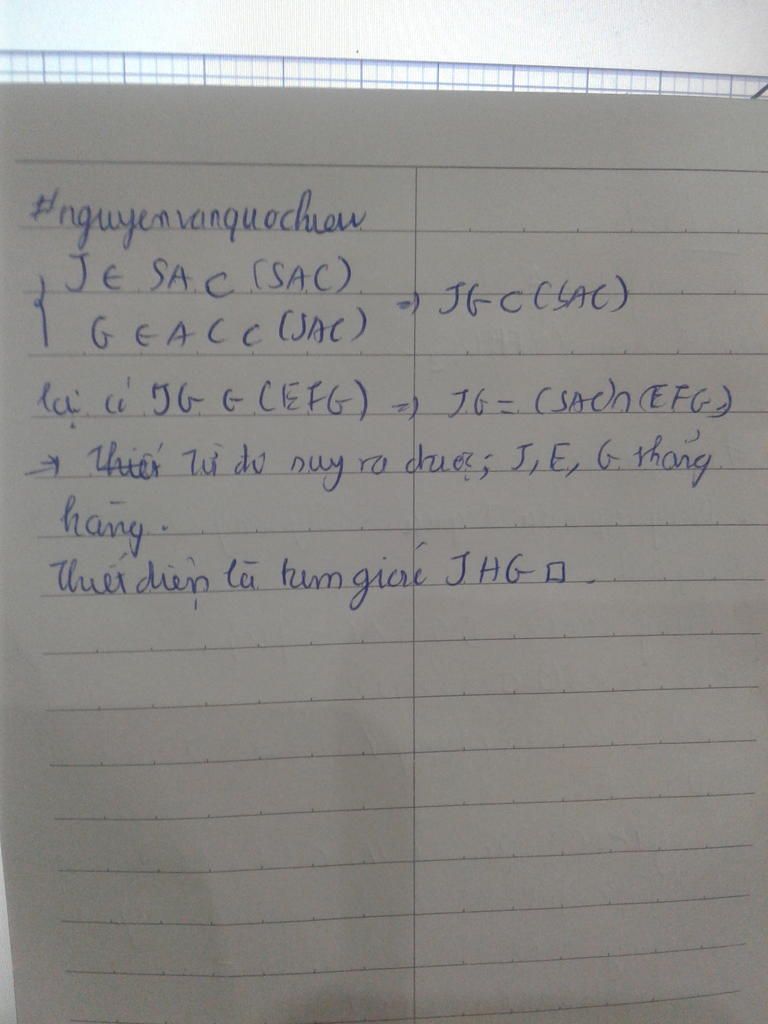 #nguyenvanquochieu
{ J ∈ SA ⊂ (SAC)
G ∈ AC ⊂ (SAC) ⇒ JG ⊂ (SAC)
lại có JG ∈ (EFG) ⇒ JG = (SAC) ∩ (EFG)
→ Từ đó suy ra được; J, E, G thẳng
hàng.
Thiết diện là tam giác JHG □.